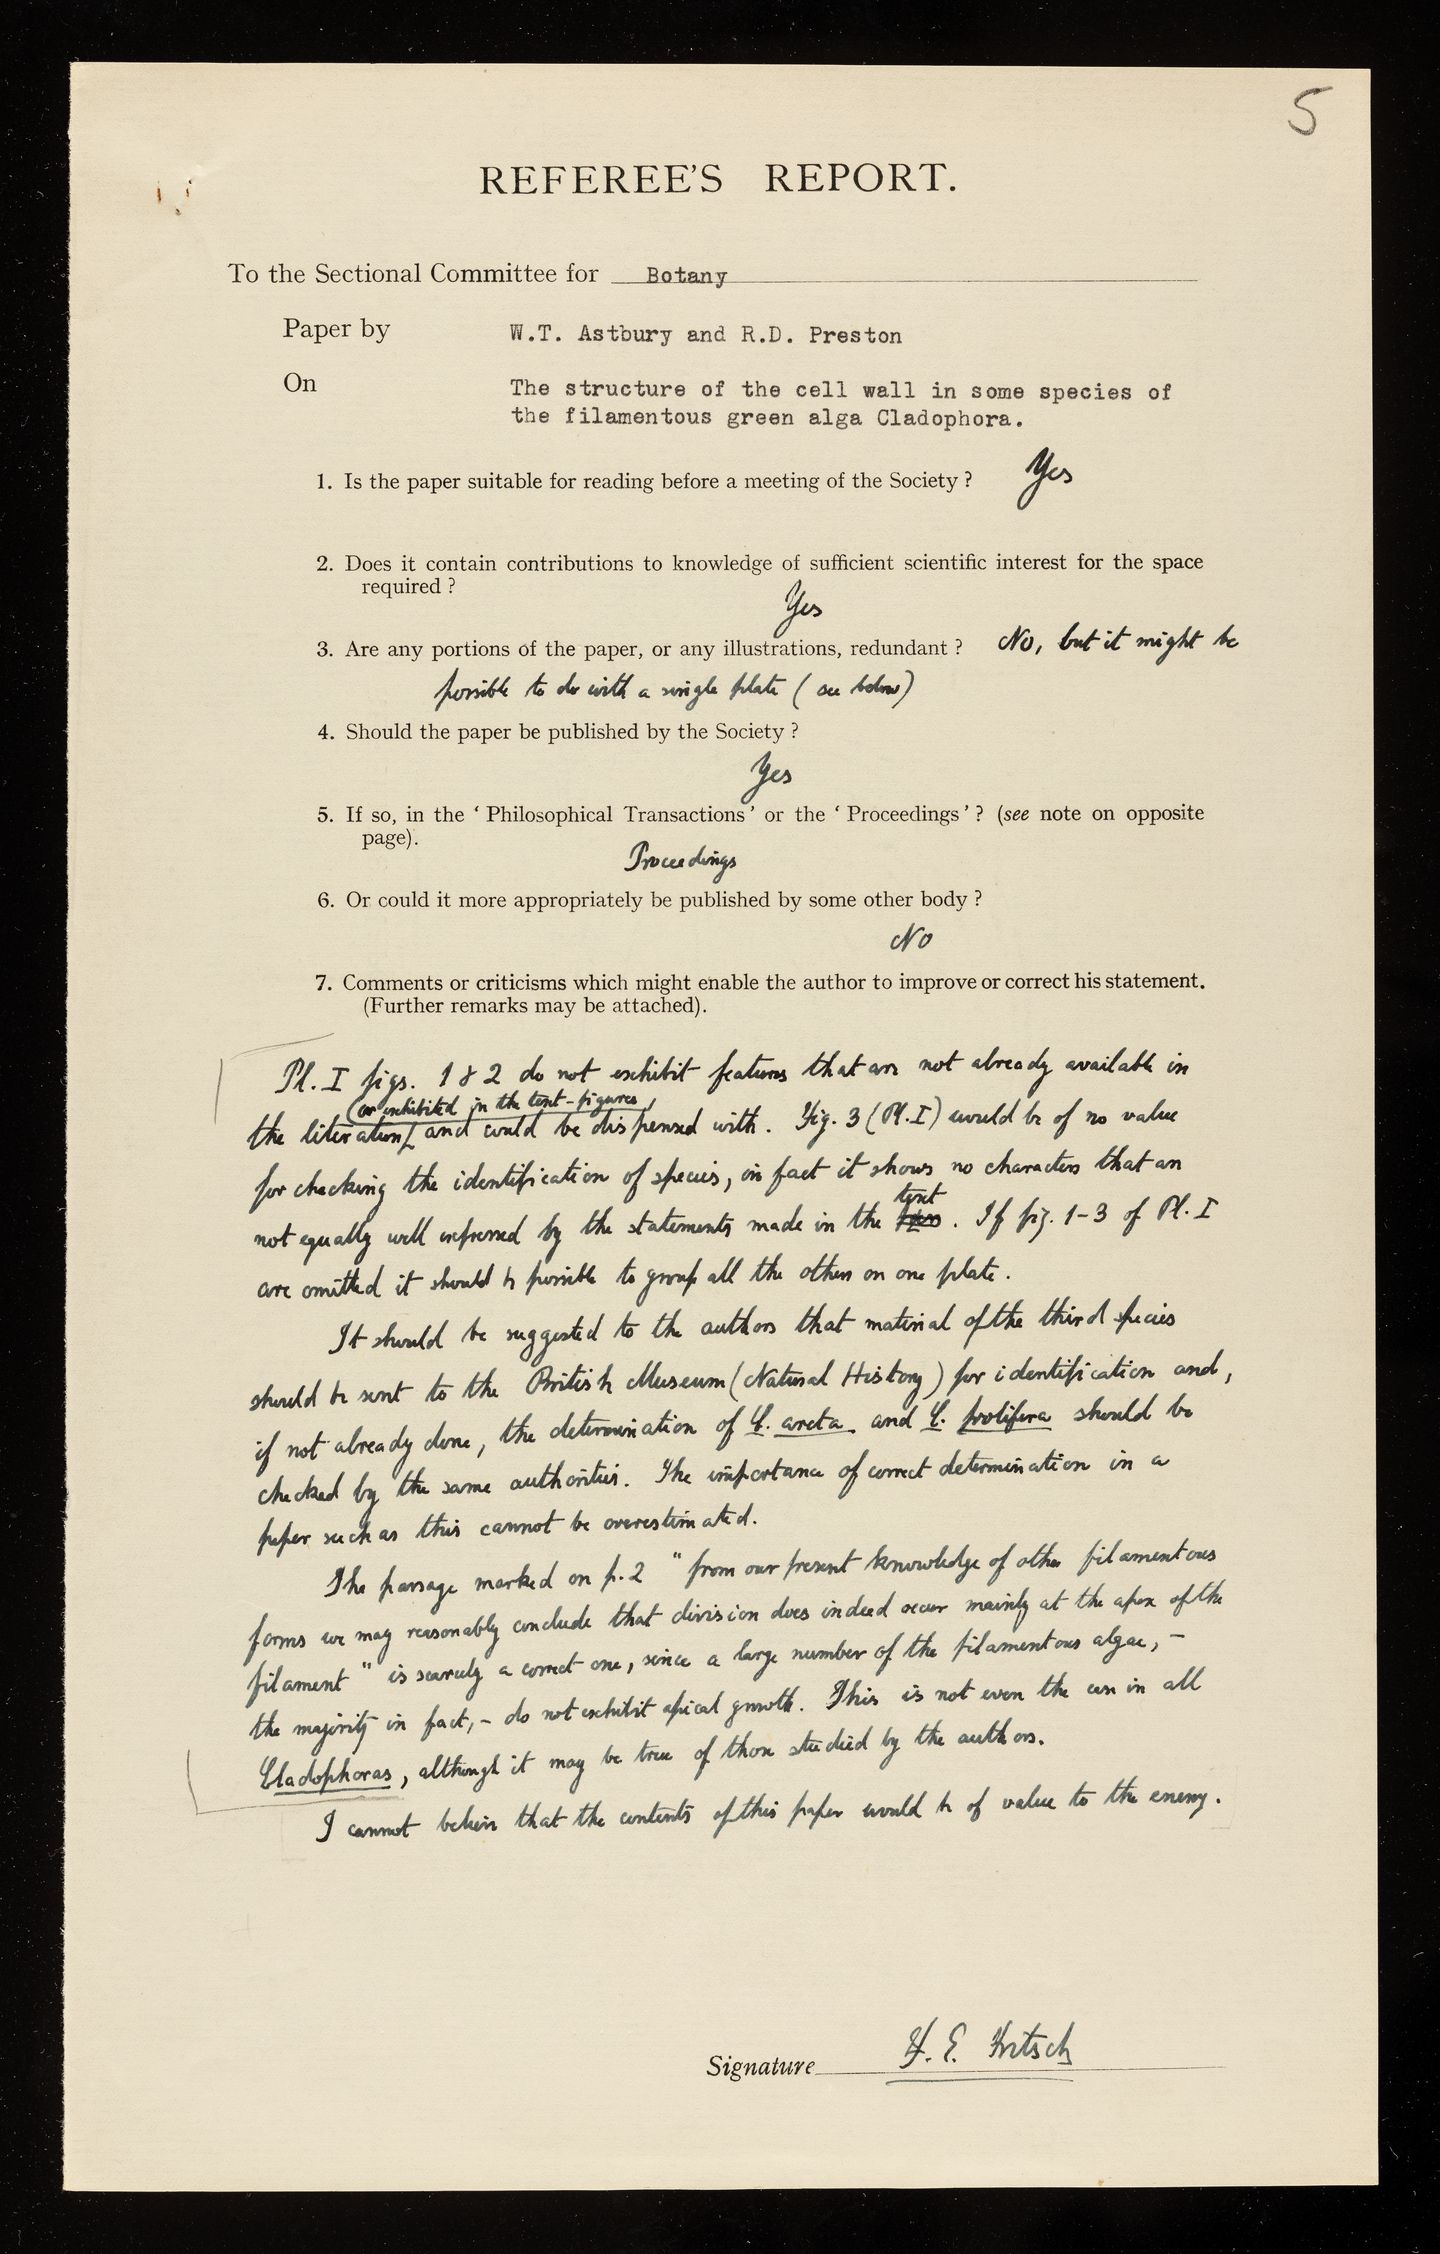 5
REFEREE'S REPORT.
To the Sectional Committee for Botany
Paper by W.T. Astbury and R.D. Preston
On The structure of the cell wall in some species of
the filamentous green alga Cladophora.
1. Is the paper suitable for reading before a meeting of the Society? Yes
2. Does it contain contributions to knowledge of sufficient scientific interest for the space
required?
Yes
3. Are any portions of the paper, or any illustrations, redundant? No, but it might be
possible to do with a single plate (see below)
4. Should the paper be published by the Society?
Yes
5. If so, in the 'Philosophical Transactions' or the 'Proceedings'? (see note on opposite
page).
Proceedings
6. Or could it more appropriately be published by some other body?
No
7. Comments or criticisms which might enable the author to improve or correct his statement.
(Further remarks may be attached).
Pl. I figs. 1 & 2 do not exhibit features that are not already available in
(or exhibited in the text-figures)
the literature and could be dispensed with. Fig. 3 (Pl. I) would be of no value
for checking the identification of species, in fact it shows no characters that are
text
not equally well expressed by the statements made in the . If fig. 1-3 of Pl. I
are omitted it should be possible to group all the others on one plate.
It should be suggested to the authors that material of the third species
should be sent to the British Museum (Natural History) for identification and,
if not already done, the determination of C. arcta and C. prolifera should be
checked by the same authorities. The importance of correct determination in a
paper such as this cannot be overestimated.
The passage marked on p. 2 "from our present knowledge of other filamentous
forms we may reasonably conclude that division does indeed occur mainly at the apex of the
filament" is scarcely a correct one, since a large number of the filamentous algae, -
the majority in fact, - do not exhibit apical growth. This is not even the case in all
Cladophoras, although it may be true of those studied by the authors.
I cannot believe that the contents of this paper would be of value to the enemy.
Signature F. E. Fritsch